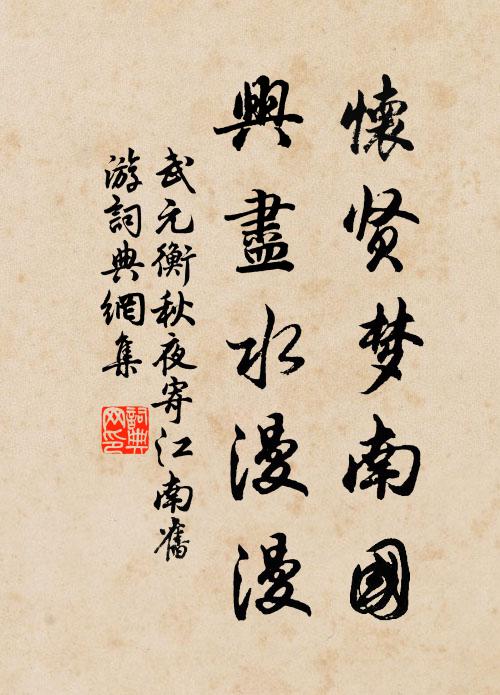 懷贤梦南國
興盡水漫漫
武元衡秋夜寄江南舊
游詞典網集
詞典網印